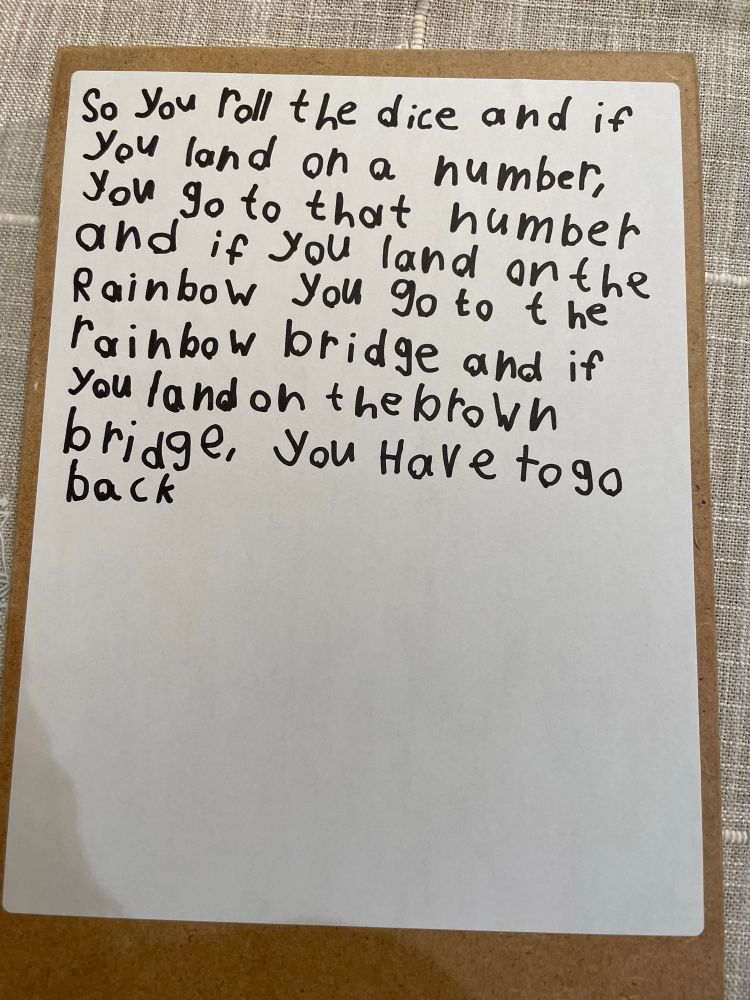 So you roll the dice and if
you land on a number,
you go to that number
and if you land on the
Rainbow you go to the
rainbow bridge and if
you land on the brown
bridge, you Have to go
back